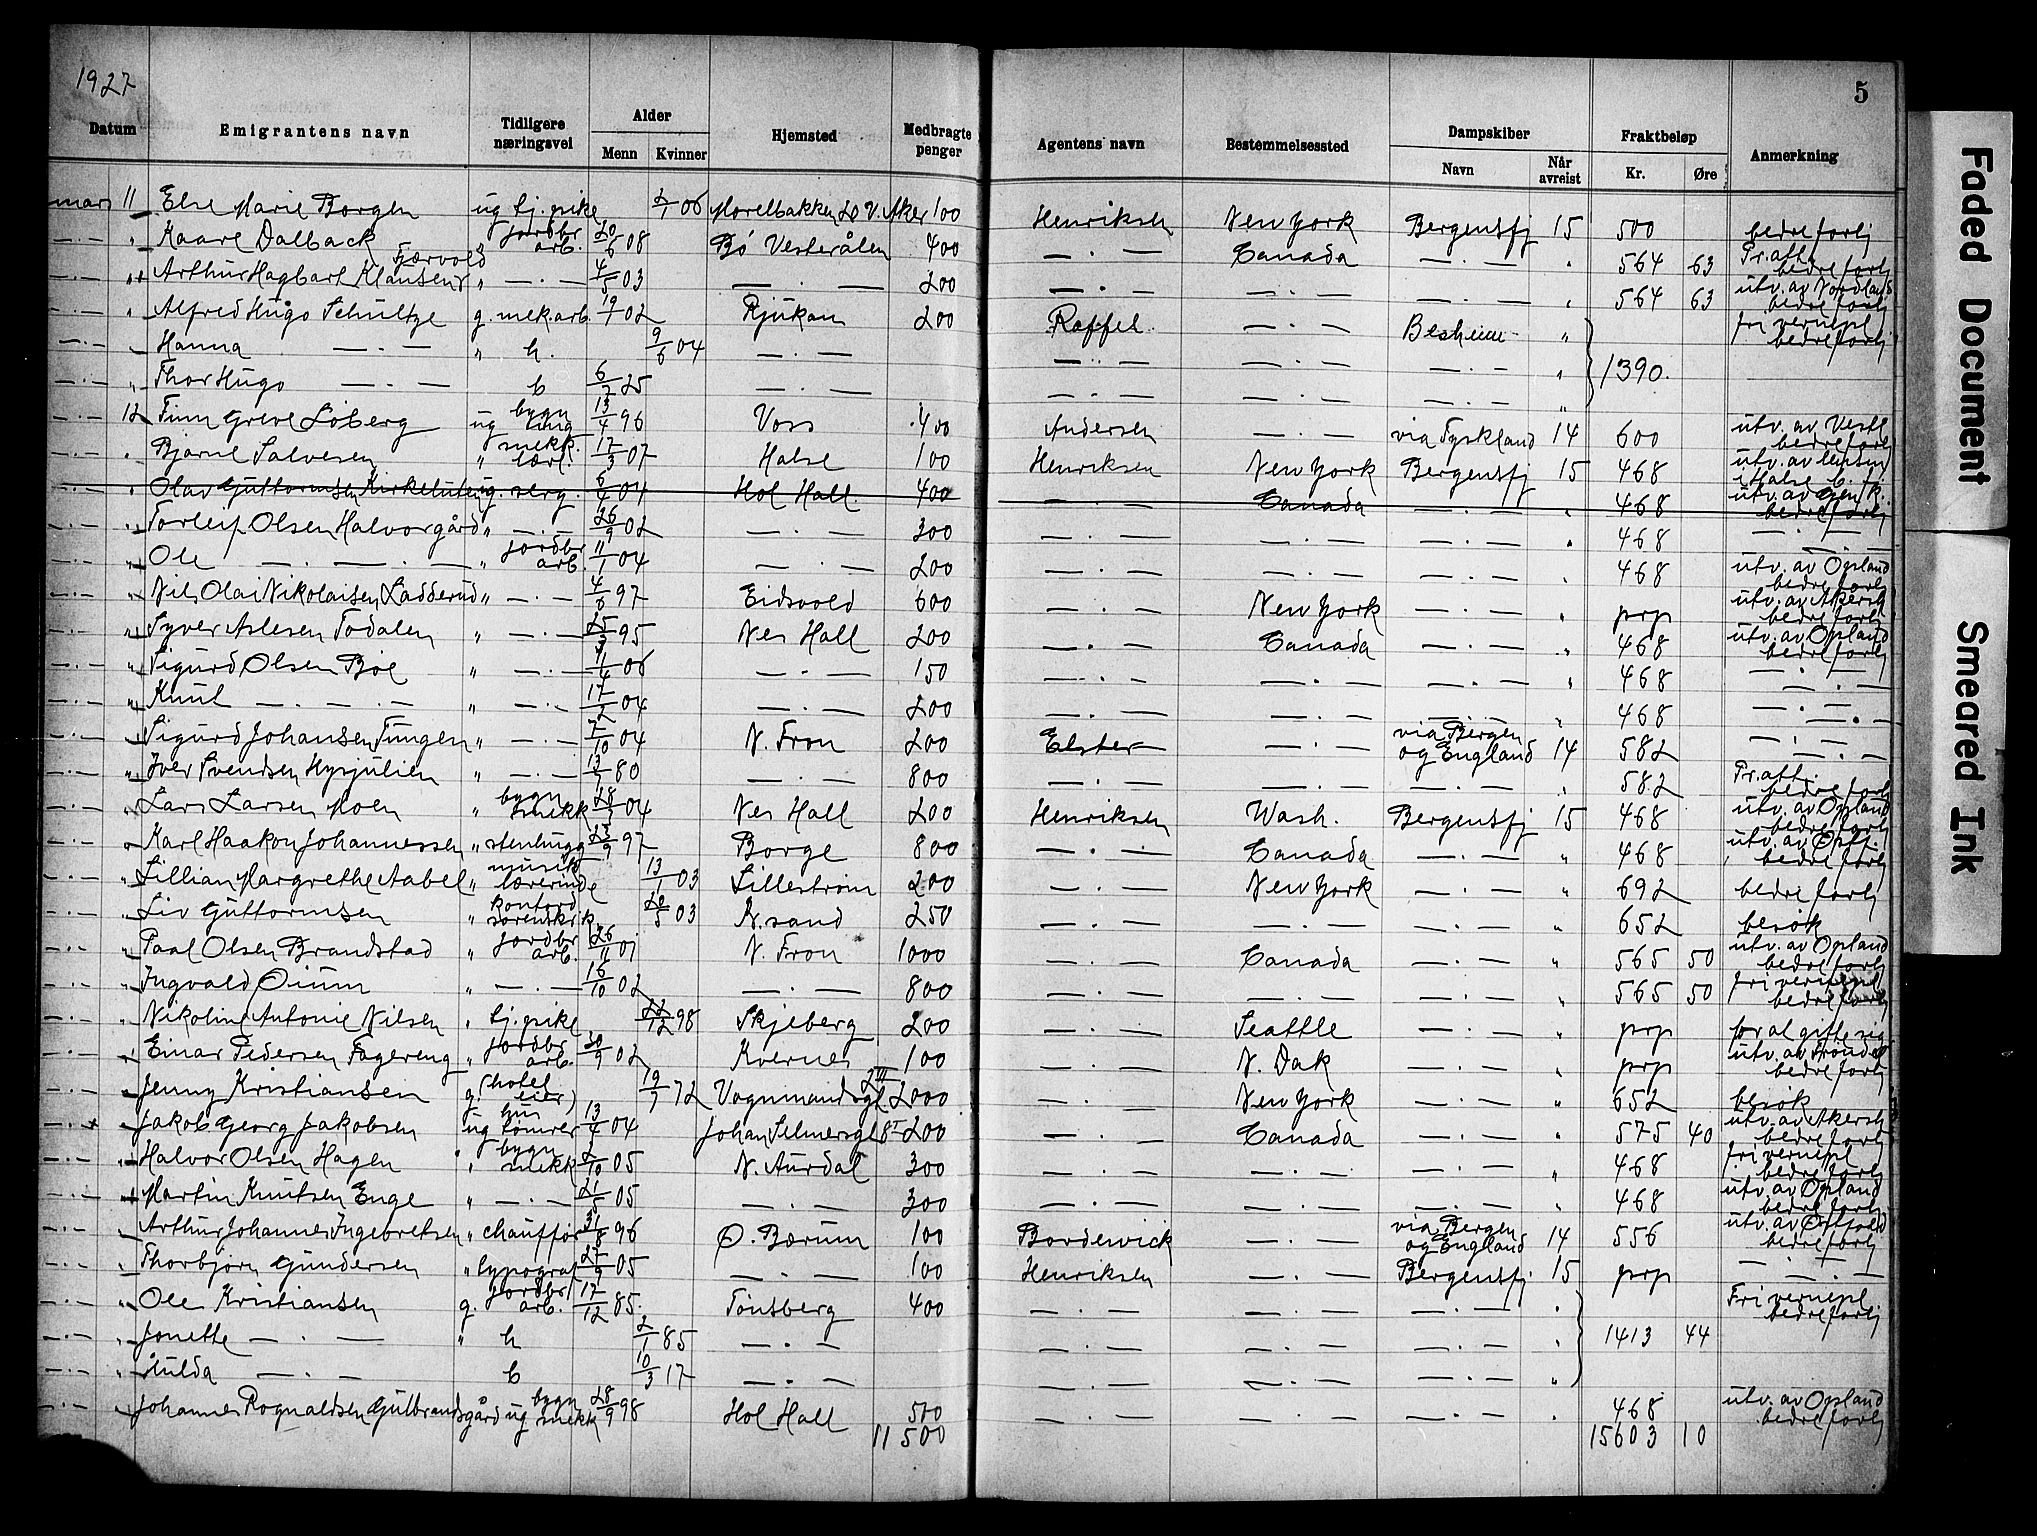 1927
5
Datum Emigrantens navn Tidligere næringsvei Alder Menn Kvinner Hjemsted Medbragte penger Agentens navn Bestemmelsessted Dampskiber Navn Når avreist Fraktbeløp Kr. Øre Anmerkning
mars 11 Else Marie Borgen ug tj.pike 06 Morelbakken 20 V. Aker 100 Henriksen New York Bergensfj 15 500 bedre forhj
" Kaare Dalback " jordbr arb. 20/6 08 Bø Vesterålen 400 — . — Canada — . — " 564 63 Pr.att. bedre forhj
" Arthur Hagbart Klausen Fjærvold " — . — 4/5 03 — . — 200 — . — — . — — . — " 564 63 utv. av Nordland bedre forhj
" Alfred Hugo Schultze g. mek.arb. 19/1 02 Rjukan 200 Raffel — . — " fri vernepl bedre forhj
" Hanna — . — " h. 9/6 04 — . — — . — — . — — . — " 1390.
" Thor Hugo — . — b 6/7 25 — . — — . — — . — — . — "
12 Finn Greve Løberg ug bygn ing 13/4 96 Voss 400 Andersen — . — via Tyskland 14 600 utv. av Vestl bedre forhj
" Bjarne Salvesen " mekk. lærl. 17/3 07 Halse 100 Henriksen New York Bergensfj 15 468 utv. av i Halse
" Olav Guttormsen Kirkeluten ug. serg. 6/4 04 Hol Hall. 400 — . — Canada — . — " 468 utv. av bedre forhj
" Torleif Olsen Halvorgård " — . — 26/9 02 — . — 300 — . — — . — — . — " 468 — . —
" Ole — . — . — " jordbr arb. 11/1 04 — . — 200 — . — — . — — . — " 468 utv. av Opland bedre forhj
" Nils Olai Nikolaisen Ladderud " — . — 4/6 97 Eidsvold 600 — . — New York — . — " prp utv. av Akersh bedre forhj
" Syver Aslesen Todalen " — . — 95 Nes Hall 200 — . — Canada — . — " 468 utv. av Opland bedre forhj
" Sigurd Olsen Bøe " — . — 06 — . — 150 — . — — . — — . — " 468 — . —
" Knut — . — . — " — . — 17/2 04 — . — 200 — . — — . — — . — " 468 — . —
" Sigurd Johansen Tungen " — . — 7/10 04 N. Fron 200 Elster — . — via Bergen og England 14 582 — . —
" Iver Svendsen Hysjulien " — . — 80 — . — 800 — . — — . — — . — " 582 Pr.att. bedre forhj
" Lars Larsen Moen " bygn snekk 04 Nes Hall 200 Henriksen Wash. Bergensfj 15 468 utv. av Opland bedre forhj
" Karl Haakon Johannessen " stenhugg 97 Borge 800 — . — Canada — . — " 468 utv. av Østfj bedre forhj
" Lillian Margrethe Aabel " musik lærerinde 13/1 03 Lillestrøm 200 — . — New York — . — " 692 bedre forhj
" Liv Guttormsen " kontord sorenskr.k. 20/5 03 K.sand 250 — . — — . — — . — " 652 besøk
" Paal Olsen Brandstad " jordbr arb. 26/11 01 N. Fron 1000 — . — Canada — . — " 565 50 utv. av Opland bedre forhj
" Ingvald Øium " — . — 16/10 02 — . — 800 — . — — . — — . — " 565 50 fri vernepl bedre forhj
" Nikoline Antonie Nilsen " tj.pike 98 Skjeberg 200 — . — Seattle — . — " prp for at gifte sig
" Einar Pedersen Fagereng " jordbr arb. 30/9 02 Kvernes 100 — . — N. Dak — . — " prp utv. av Trøndel bedre forhj
" Jenny Kristiansen g. (hotel eier) 9/7 72 Vognmandsgt 2 III 2000 — . — New York — . — " 652 besøk
" Jakob Georg Jakobsen ug tømrer 13/4 04 Johan Selmersgt 8 I 200 — . — Canada — . — " 575 40 utv. av Akersh bedre forhj
" Halvor Olsen Hagen " bygn snekk 2/10 05 N. Aurdal 300 — . — — . — — . — " 468 fri vernepl bedre forhj
" Martin Knutsen Enge " — . — 21/5 05 — . — 300 — . — — . — — . — " 468 utv. av Opland bedre forhj
" Arthur Johannes Ingebretsen " chauffør 31/8 96 Ø. Bærum 100 Bordewick — . — via Bergen og England 14 556 utv. av Østfold bedre forhj
" Thorbjørn Gundersen " typograf 05 — . — 100 Henriksen — . — Bergensfj 15 prp — . —
" Ole Kristiansen g. jordbr arb. 17/12 85. Tønsberg 400 — . — — . — — . — " Fri vernepl bedre forhj
" Jonette — . — " h 2/1 85 — . — — . — — . — — . — " 1413 44
" Hulda — . — b 10/3 17 — . — — . — — . — — . — "
" Johannes Rognaldsen Gulbrandsgård ug bygn snekk 28/9 98 Hol Hall 500 — . — — . — — . — " 468 utv. av Opland bedre forhj
11500 15603 10
Faded Document
Smeared Ink